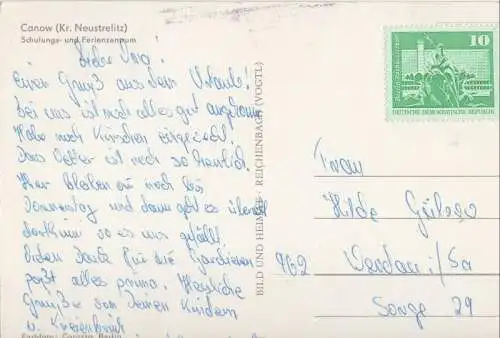 Canow (Kr. Neustrelitz)
Schulungs- und Ferienzentrum
Liebe
Einen Gruß aus dem Urlaub!
bei uns ist noch alles gut
Habe noch Kirschen eingeweckt.
Das Wetter ist noch so herrlich.
Hier bleiben wir noch bis
Donnerstag und dann geht es
dorthin wo es uns gefällt.
Vielen Dank für die Gardinen
paßt alles prima. Herzliche
Grüße von Deinen Kindern
BILD UND HEIMAT REICHENBACH (VOGTL)
10
DEUTSCHE DEMOKRATISCHE REPUBLIK
Frau
Hilde
962 Werdau i/Sa
29